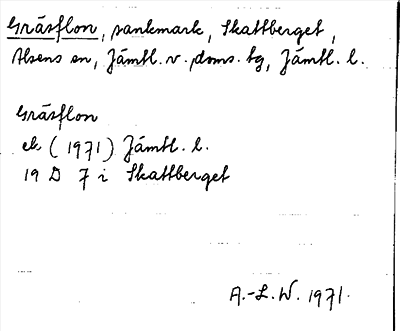 Gräsflon, sankmark, Skattberget,
Alsens sn, Jämtl. v. doms. tg, Jämtl. l.
Gräsflon
ek (1971) Jämtl. l.
19 D 7 i Skattberget
A.-L. W. 1971.